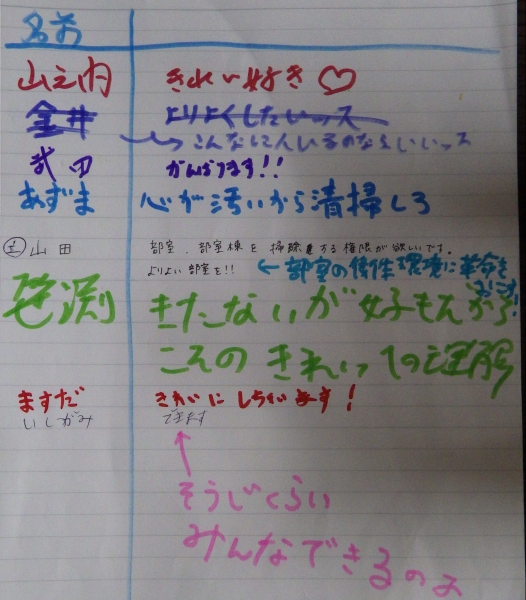 名前
山之内 きれい好き♡
金井 よりよくしたいッス
こんなにてんいるのならいいッス
武田 がんばります!!
あずま 心が汚いから清掃しろ
正 山田 部室、部室棟を掃除する権限が欲しいです。
よりよい部室を!!
←部室の衛生環境に革命をおこす!
笹渕 きたないが好もんだから
こそのきれいへの理解
ますだ きれいにしちゃいます!
いしがみ できます
そうじくらい
みんなできるのよ